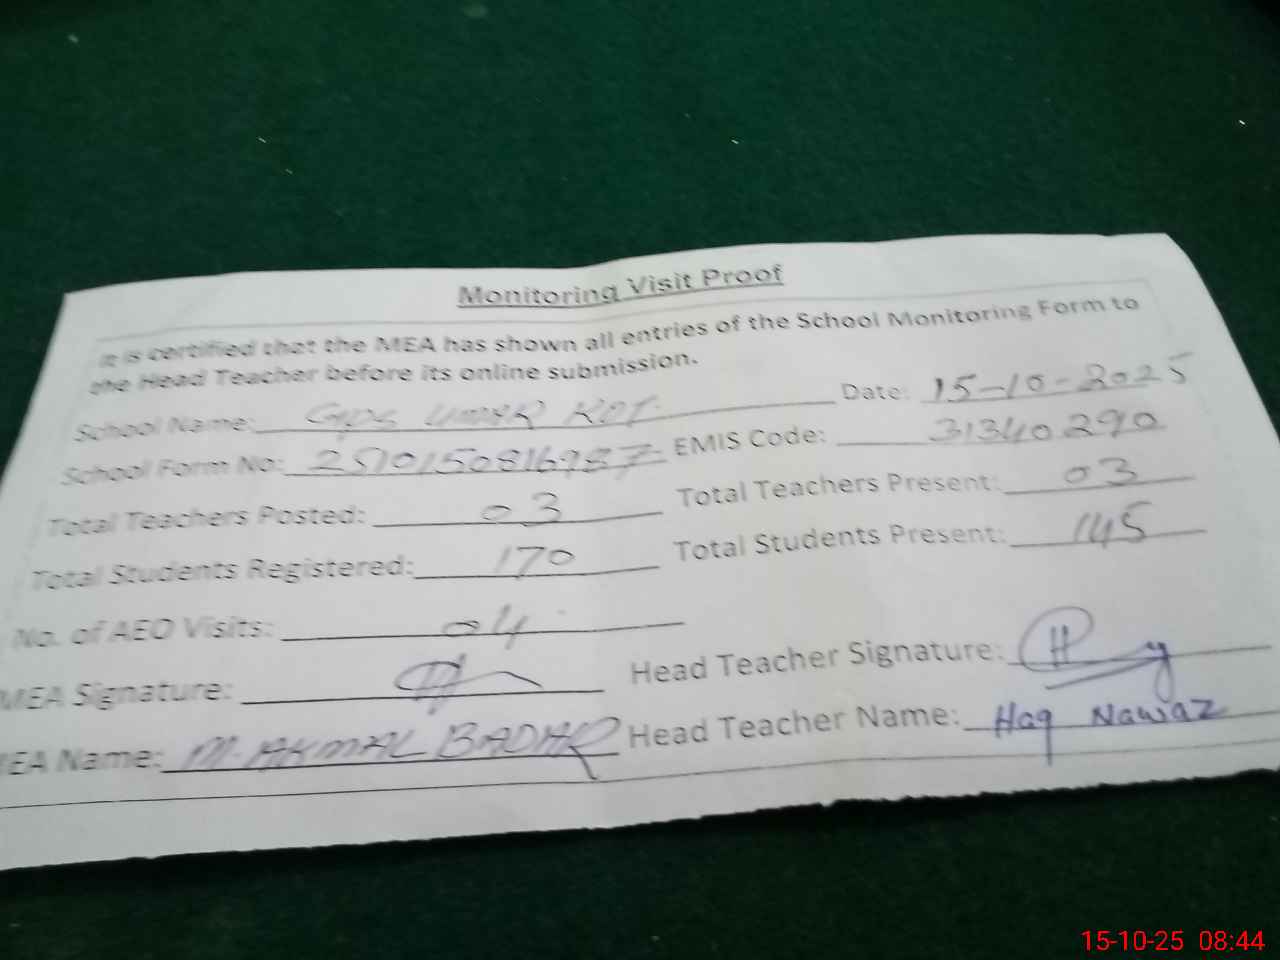 Monitoring Visit Proof
It is certified that the MEA has shown all entries of the School Monitoring Form to
the Head Teacher before its online submission.
School Name: GPS UMAR KOT Date: 15-10-2025
School Form No: EMIS Code: 31340290
Total Teachers Posted: 03 Total Teachers Present: 03
Total Students Registered: 170 Total Students Present: 145
No. of AEO Visits: 04
MEA Signature: Head Teacher Signature:
EA Name: M. AKMAL Head Teacher Name: Haq Nawaz
15-10-25 08:44